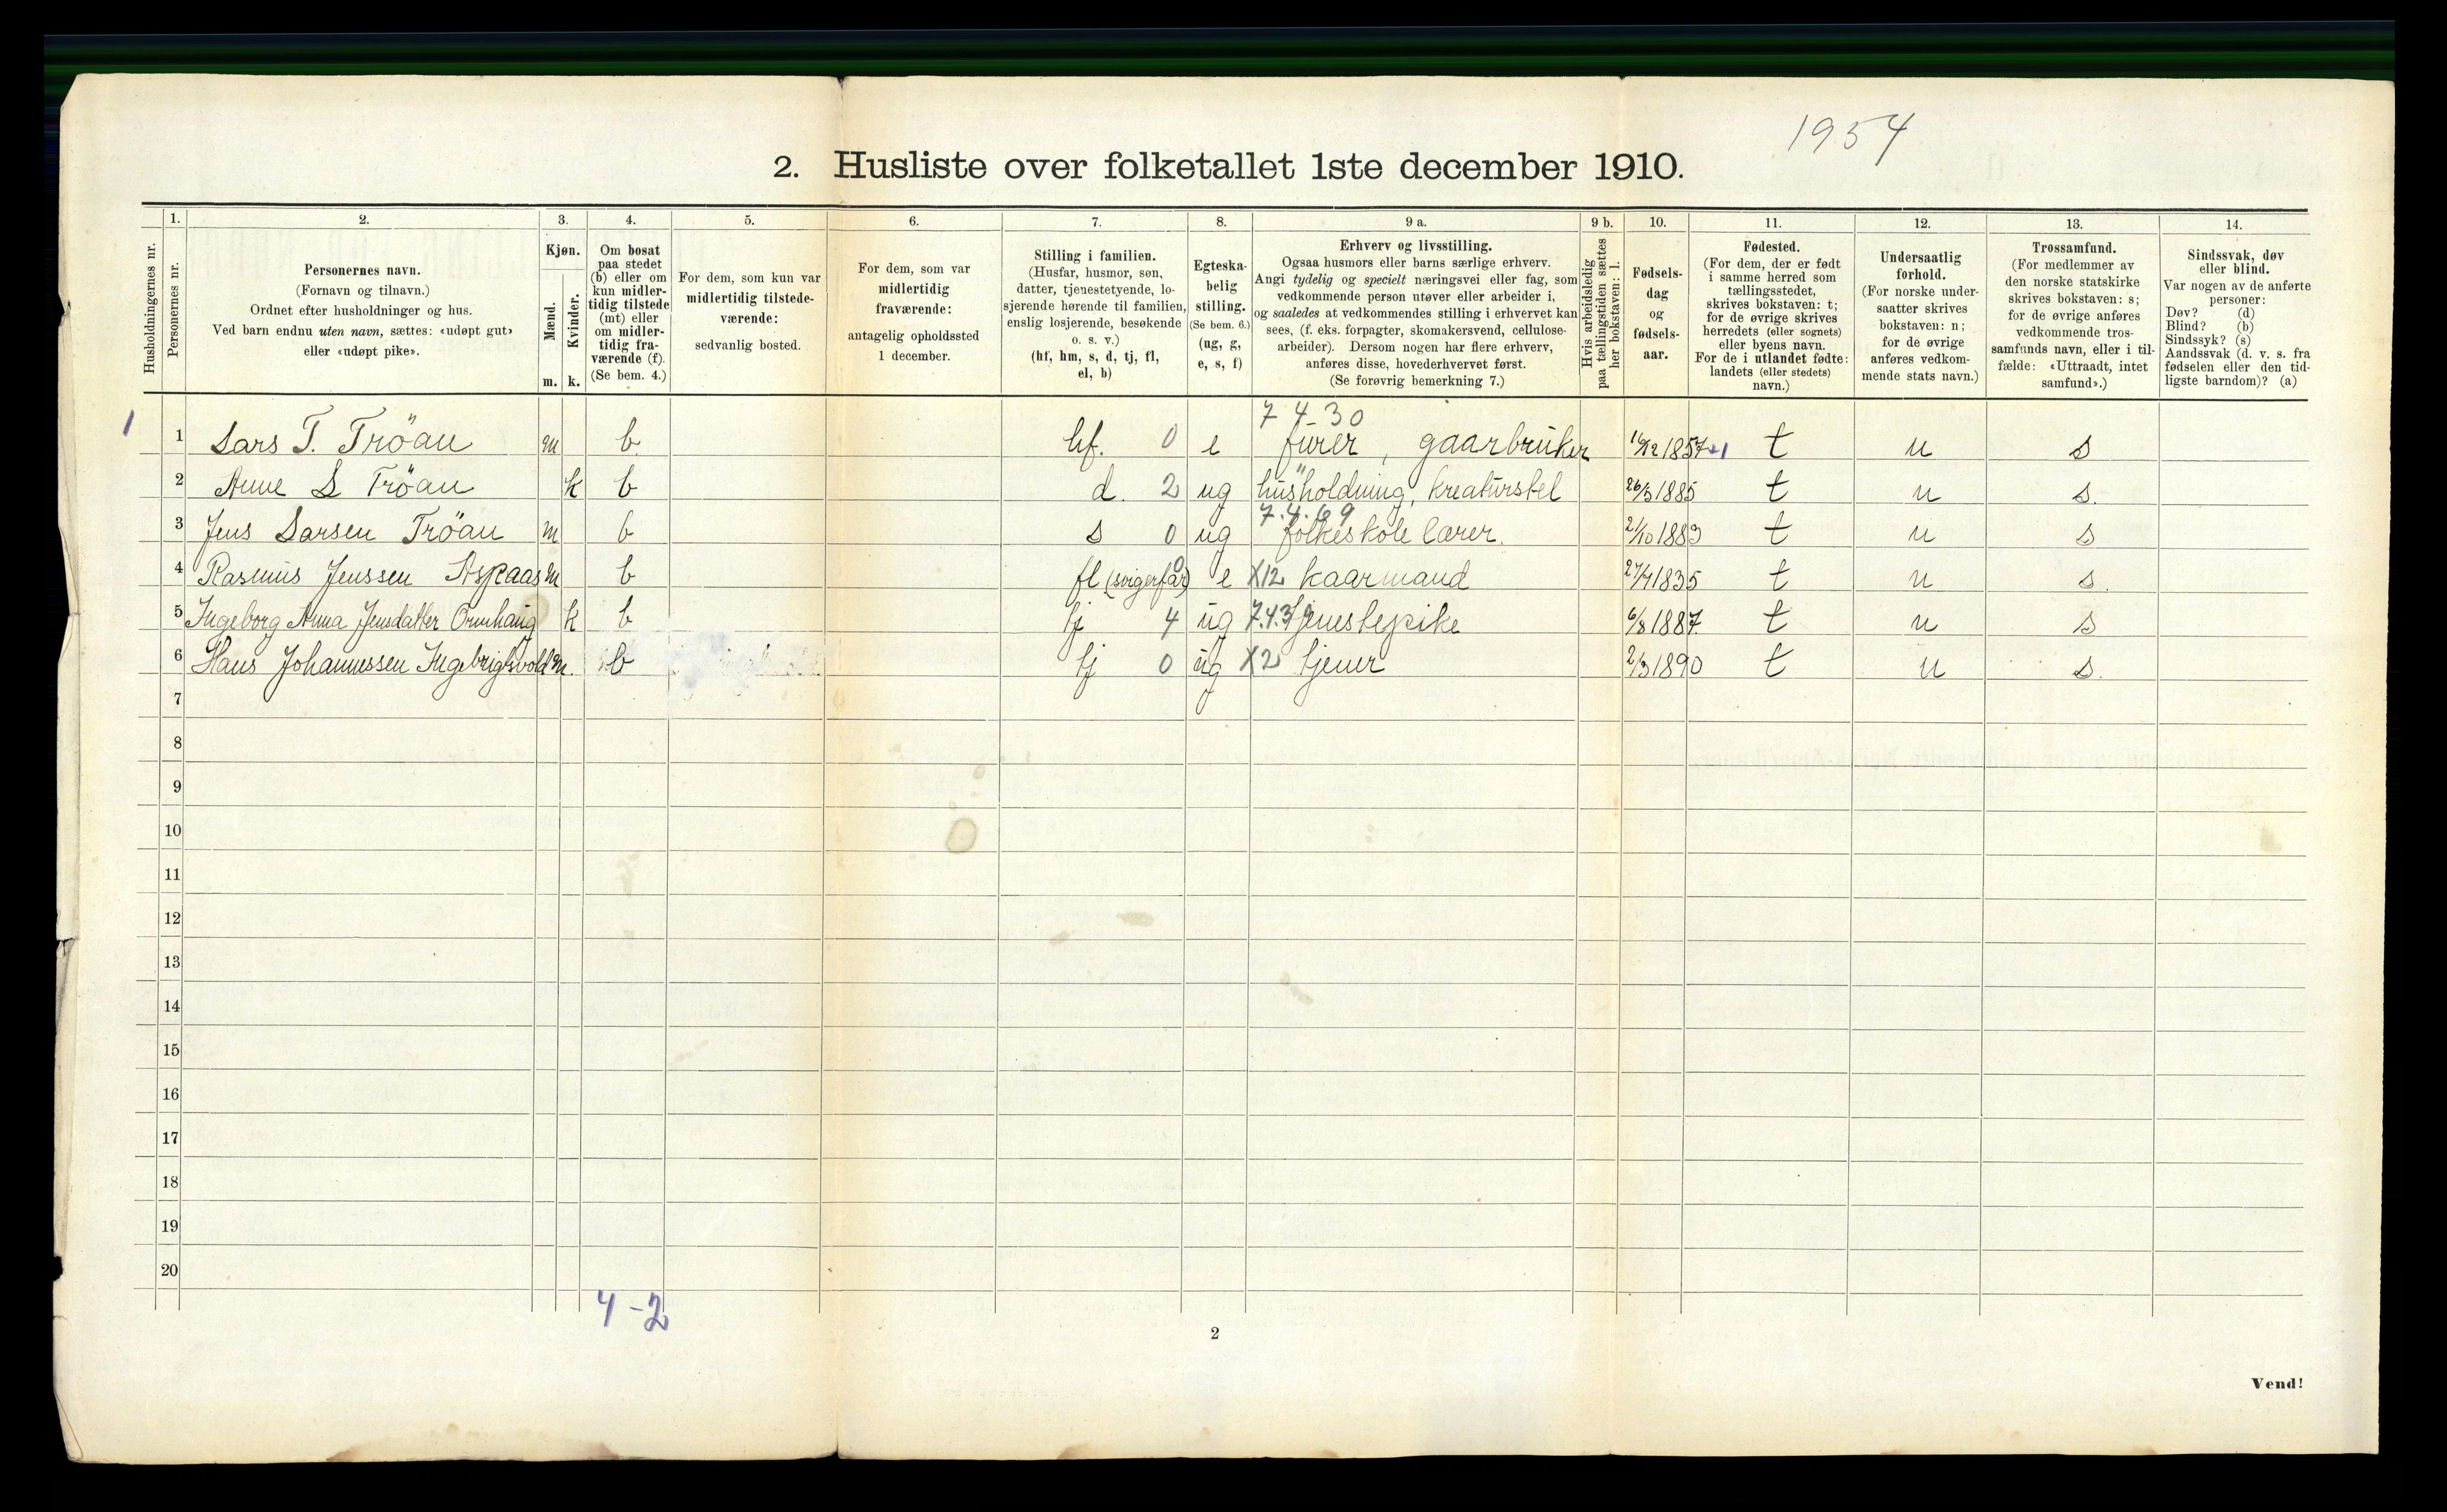 1954
2. Husliste over folketallet 1ste december 1910.
Husholdningernes nr.
1.
Personernes nr.
2.
Personernes navn.
(Fornavn og tilnavn.)
Ordnet efter husholdninger og hus.
Ved barn endnu uten navn, sættes: «udøpt gut»
eller «udøpt pike».
3.
Kjøn.
Mænd.
Kvinder.
m. k.
4.
Om bosat
paa stedet
(b) eller om
kun midler-
tidig tilstede
(mt) eller
om midler-
tidig fra-
værende (f).
(Se bem. 4.)
5.
For dem, som kun var
midlertidig tilstede-
værende:
sedvanlig bosted.
6.
For dem, som var
midlertidig
fraværende:
antagelig opholdssted
1 december.
7.
Stilling i familien.
(Husfar, husmor, søn,
datter, tjenestetyende, lo-
sjerende hørende til familien,
enslig losjerende, besøkende
o. s. v.)
(hf, hm, s, d, tj, fl,
el, b)
8.
Egteska-
belig
stilling.
(Se bem. 6.)
(ug, g,
e, s, f)
9 a.
Erhverv og livsstilling.
Ogsaa husmors eller barns særlige erhverv.
Angi tydelig og specielt næringsvei eller fag, som
vedkommende person utøver eller arbeider i,
og saaledes at vedkommendes stilling i erhvervet kan
sees, (f. eks. forpagter, skomakersvend, cellulose-
arbeider). Dersom nogen har flere erhverv,
anføres disse, hovederhvervet først.
(Se forøvrig bemerkning 7.)
9 b.
Hvis arbeidsledig
paa tællingstiden sættes
her bokstaven: l.
10.
Fødsels-
dag
og
fødsels-
aar.
11.
Fødested.
(For dem, der er født
i samme herred som
tællingsstedet,
skrives bokstaven: t;
for de øvrige skrives
herredets (eller sognets)
eller byens navn.
For de i utlandet fødte:
landets (eller stedets)
navn.)
12.
Undersaatlig
forhold.
(For norske under-
saatter skrives
bokstaven: n;
for de øvrige
anføres vedkom-
mende stats navn.)
13.
Trossamfund.
(For medlemmer av
den norske statskirke
skrives bokstaven: s;
for de øvrige anføres
vedkommende tros-
samfunds navn, eller i til-
fælde: «Uttraadt, intet
samfund».)
14.
Sindssvak, døv
eller blind.
Var nogen av de anførte
personer:
Døv? (d)
Blind? (b)
Sindssyk? (s)
Aandssvak (d. v. s. fra
fødselen eller den tid-
ligste barndom)? (a)
7 4-30
1 1 Lars T. Tröan m b. hf. 0 e fürer, gaarbruker 16/12 1857 +1 t n s
2 Anne L Tröan k b d. 2 ug husholdning, kreaturstel 26/3 1885 t n s.
7.4.69
3 Jens Larsen Tröan m b s 0 ug folkeskole lærer. 21/10 1883 t n s
4 Rasmus Jenssen Aspaas m b fl (svigerfar) 0 e X12 kaarmand 27/4 1835 t n s.
5 Ingeborg Anna Jensdatter Ormhaug k b tj 4 ug 7.4.39 tjenestepike 6/8 1887. t n s
6 Hans Johannessen Ingebrigtsvold m. b tj 0 ug X2 tjener 2/3 1890 t n s.
7
8
9
10
11
12
13
14
15
16
17
18
19
20
4-2
2
Vend!